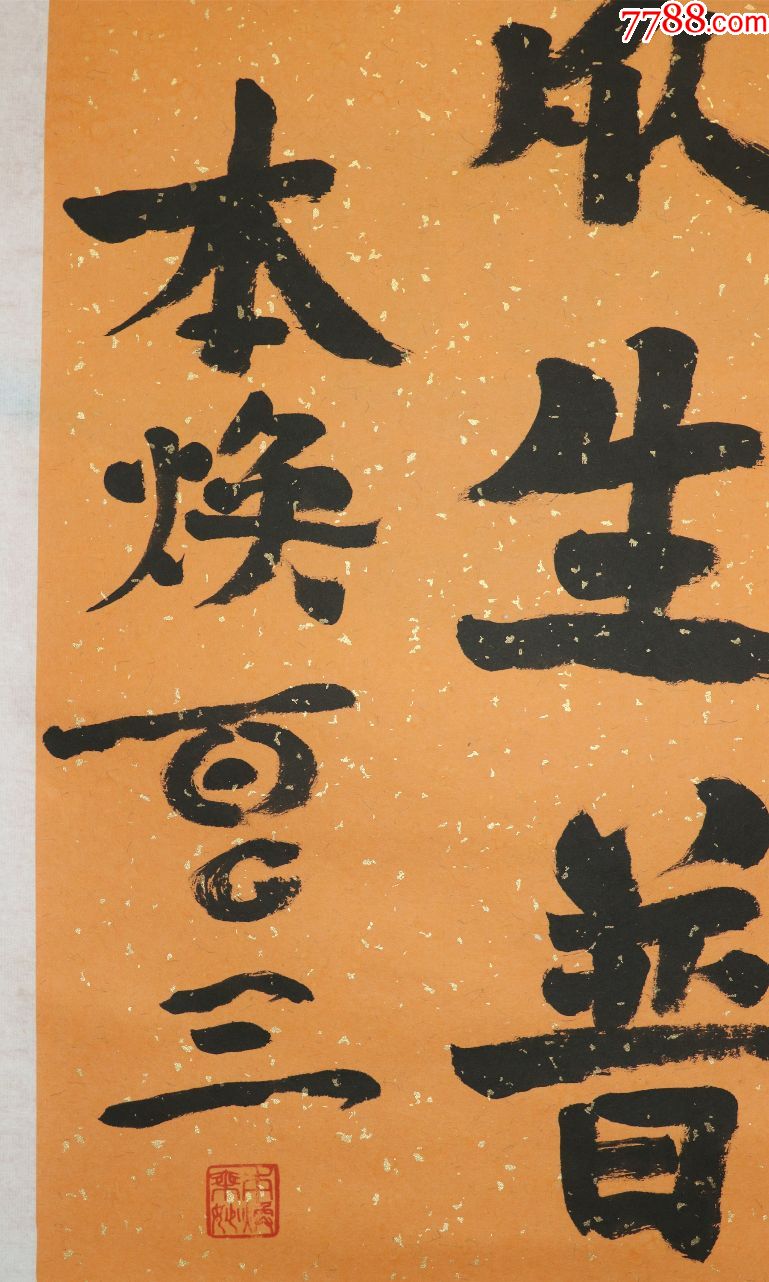 7788.com
生普
本焕百〇三